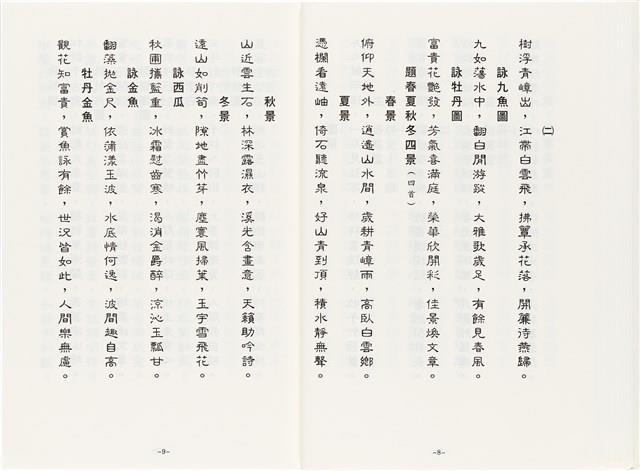 (二)
樹浮青嶂出，江帶白雲飛，拂簟承花落，開簾待燕歸。
詠九魚圖
九如藻水中，翻白閒游蹤，大雅歌歲足，有餘見春風。
詠牡丹圖
富貴花艷發，芳氣喜滿庭，榮華欣開彩，佳景煥文章。
題春夏秋冬四景（四首）
春景
俯仰天地外，逍遙山水間，歲耕青嶂雨，高臥白雲鄉。
夏景
憑欄看遠岫，倚石聽流泉，好山青到頂，積水靜無聲。
-8-
秋景
山近雲生石，林深露濕衣，溪光含畫意，天籟助吟詩。
冬景
遠山如削筍，隙地盡竹芽，塵寰風掃葉，玉宇雪飛花。
詠西瓜
秋圃攜籃重，冰霜慰齒寒，渴消金爵醉，涼沁玉瓢甘。
詠金魚
翻藻拋金尺，依蒲漾玉波，水底情何逸，波間趣自高。
牡丹金魚
觀花知富貴，賞魚詠有餘，世況皆如此，人間樂無慮。
-9-